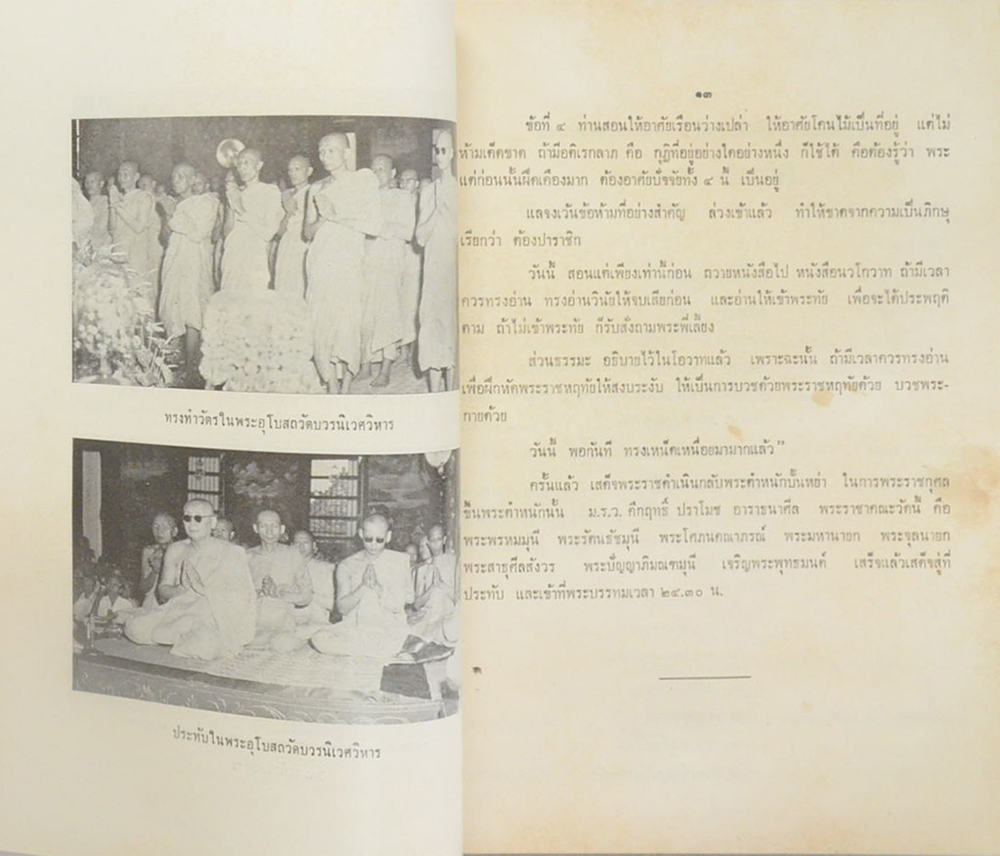 ทรงทำวัตรในพระอุโบสถวัดบวรนิเวศวิหาร
ประทับในพระอุโบสถวัดบวรนิเวศวิหาร
๑๓
ข้อที่ ๔ ท่านสอนให้อาศัยเรือนว่างเปล่า ให้อาศัยโคนไม้เป็นที่อยู่ แต่ไม่
ห้ามเด็ดขาด ถ้ามีอดิเรกลาภ คือ กุฏิที่อยู่อย่างใดอย่างหนึ่ง ก็ใช้ได้ คือต้องรู้ว่า พระ
แต่ก่อนนั้นฝืดเคืองมาก ต้องอาศัยปัจจัยทั้ง ๔ นี้ เป็นอยู่
แลจงเว้นข้อห้ามที่อย่างสำคัญ ล่วงเข้าแล้ว ทำให้ขาดจากความเป็นภิกษุ
เรียกว่า ต้องปาราชิก
วันนี้ สอนแต่เพียงเท่านี้ก่อน ถวายหนังสือไป หนังสือนวโกวาท ถ้ามีเวลา
ควรทรงอ่าน ทรงอ่านวินัยให้จบเสียก่อน และอ่านให้เข้าพระทัย เพื่อจะได้ประพฤติ
ตาม ถ้าไม่เข้าพระทัย ก็รับสั่งถามพระพี่เลี้ยง
ส่วนธรรมะ อธิบายไว้ในโอวาทแล้ว เพราะฉะนั้น ถ้ามีเวลาควรทรงอ่าน
เพื่อฝึกหัดพระราชหฤทัยให้สงบระงับ ให้เป็นการบวชด้วยพระราชหฤทัยด้วย บวชพระ-
กายด้วย
วันนี้ พอกันที ทรงเหน็ดเหนื่อยมามากแล้ว”
ครั้นแล้ว เสด็จพระราชดำเนินกลับพระตำหนักปั้นหย่า ในการพระราชกุศล
ขึ้นพระตำหนักนั้น ม.ร.ว. คึกฤทธิ์ ปราโมช อาราธนาศีล พระราชาคณะวัดนี้ คือ
พระพรหมมุนี พระรัตนธัชมุนี พระโศภนคณาภรณ์ พระมหานายก พระจุลนายก
พระสาธุศีลสังวร พระปัญญาภิมณฑมุนี เจริญพระพุทธมนต์ เสร็จแล้วเสด็จสู่ที่
ประทับ และเข้าที่พระบรรทมเวลา ๒๔.๓๐ น.